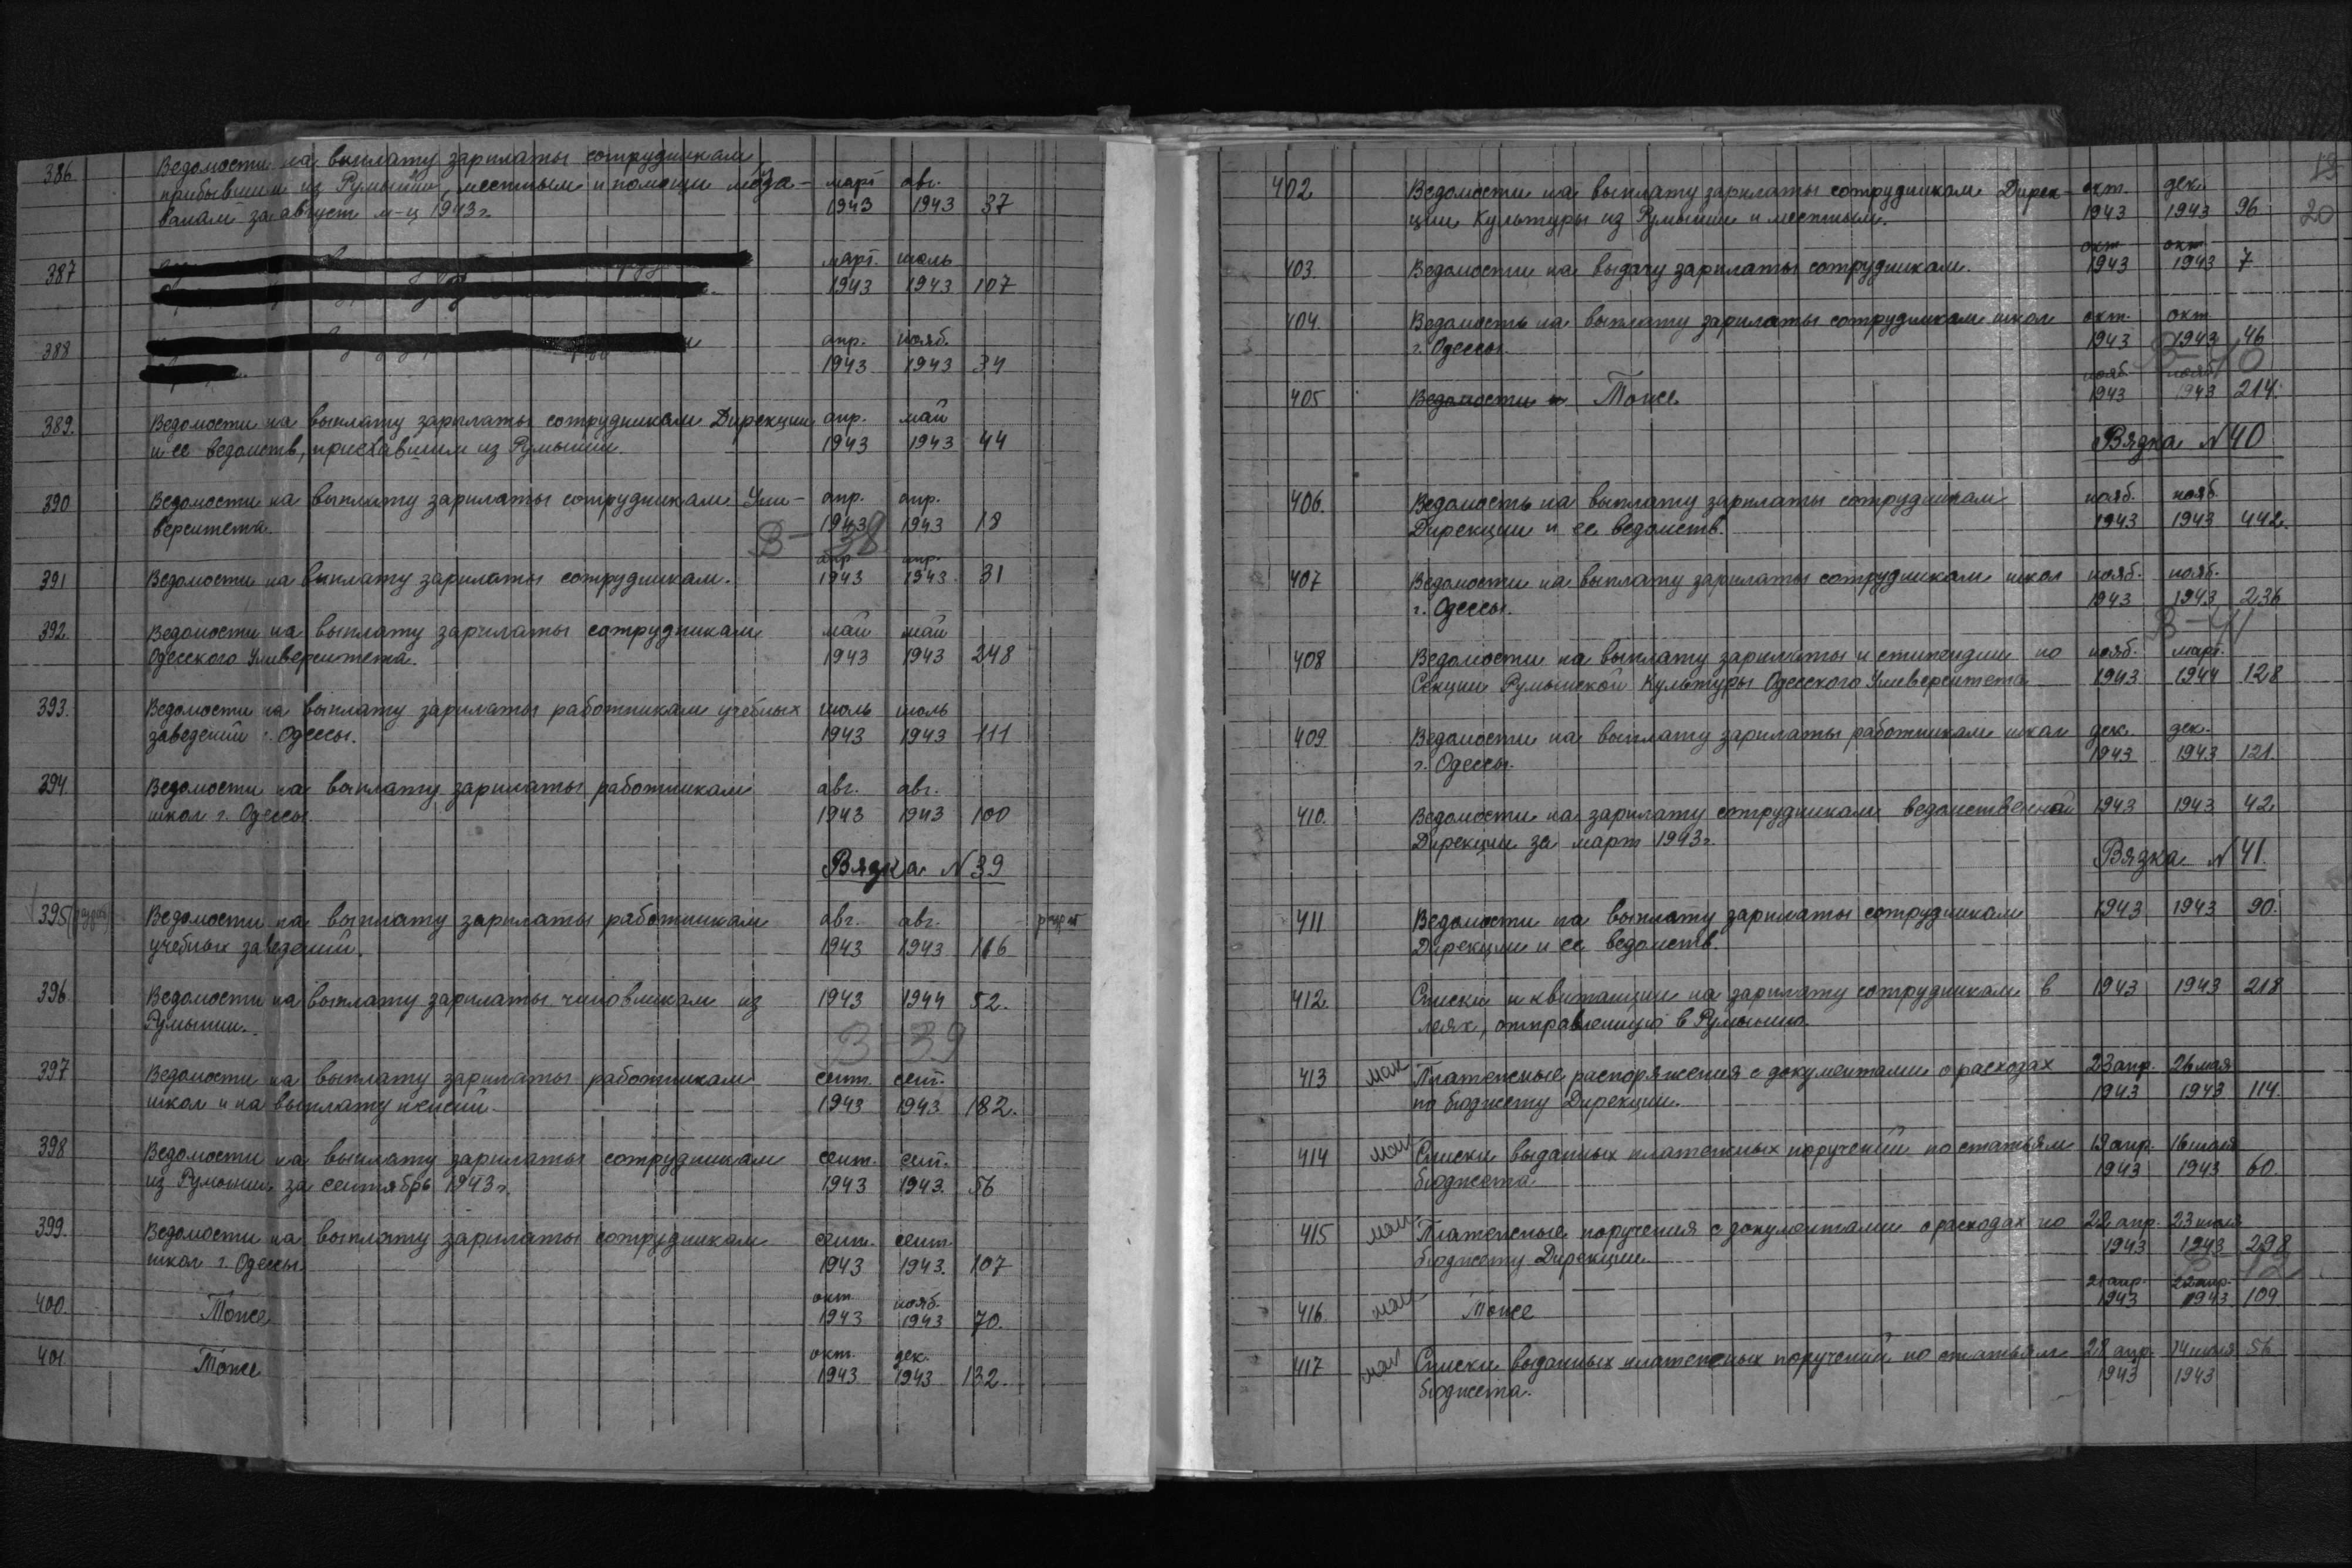 386. Ведомости на выплату зарплаты сотрудникам
прибывшим из Румынии, местным и помощи моза- март авг.
ванам за август м-ц 1943г. 1943 1943 37
387 март. июль
1943 1943 107
388 апр. нояб.
1943 1943 34
389. Ведомости на выплату зарплаты сотрудникам Дирекции апр. май
и ее ведомств, приехавшим из Румынии. 1943 1943 44
390 Ведомости на выплату зарплаты сотрудникам Уни- апр. апр.
верситета. 1943 1943 18
В-38
апр. апр.
391 Ведомости на выплату зарплаты сотрудникам. 1943 1943 31
392. Ведомости на выплату зарплаты сотрудникам май май
Одесского Университета. 1943 1943 248
393. Ведомости на выплату зарплаты работникам учебных июль июль
заведений г. Одессы. 1943 1943 111
394. Ведомости на выплату зарплаты работникам авг. авг.
школ г. Одессы. 1943 1943 100
Вязка N 39
395 Ведомости на выплату зарплаты работникам авг. авг.
учебных заведений. 1943 1943 116
396 Ведомости на выплату зарплаты чиновникам из 1943 1944 52.
Румынии.
В-39
397 Ведомости на выплату зарплаты работникам сент. сент.
школ и на выплату пенсий. 1943 1943 182.
398 Ведомости на выплату зарплаты сотрудникам сент. сент.
из Румынии за сентябрь 1943г. 1943 1943. 56
399. Ведомости на выплату зарплаты сотрудникам сент. сент.
школ г. Одессы. 1943 1943. 107
400. Тоже окт. нояб.
1943 1943 70.
401 Тоже окт. дек.
1943 1943 132.
19
20
402 Ведомости на выплату зарплаты сотрудникам Дирек- окт. дек.
ции Культуры из Румынии и местным. 1943 1943 96
окт окт
403. Ведомости на выдачу зарплаты сотрудникам. 1943 1943 7
404. Ведомость на выплату зарплаты сотрудникам школ окт. окт
г. Одессы. 1943 1943 46
В-40
нояб. нояб.
405 Ведомости Тоже. 1943 1943 214.
Вязка N 40
406. Ведомость на выплату зарплаты сотрудникам нояб. нояб
Дирекции и ее ведомств. 1943 1943 442.
407 Ведомости на выплату зарплаты сотрудникам школ нояб. нояб.
г. Одессы. 1943 1943 236
В-41
408 Ведомости на выплату зарплаты и стипендии по нояб. март.
Секции Румынской Культуры Одесского Университета 1943 1944 128
409 Ведомости на выплату зарплаты работникам школ дек. дек.
г. Одессы. 1943 1943 121.
410. Ведомости на зарплату сотрудникам ведомственной 1943 1943 42.
Дирекции за март 1943г.
Вязка N 41.
411 Ведомости на выплату зарплаты сотрудникам 1943 1943 90.
Дирекции и ее ведомств.
412. Списки и квитанции на зарплату сотрудникам в 1943 1943 218
леях, отправленную в Румынию.
413 Платежные распоряжения с документами о расходах 23 апр. 26 мая
по бюджету Дирекции. 1943 1943 114.
414 Списки выданных платежных поручений по статьям 19 апр. 16 мая
бюджета 1943 1943 60.
415 Платежные поручения с документами о расходах по 22 апр. 23 мая
бюджету Дирекции. 1943 1943 298
21 апр. 22 апр.
416. Тоже 1943 1943 109
417 Списки выданных платежных поручений по статьям 28 апр. 14 мая 56
бюджета. 1943 1943